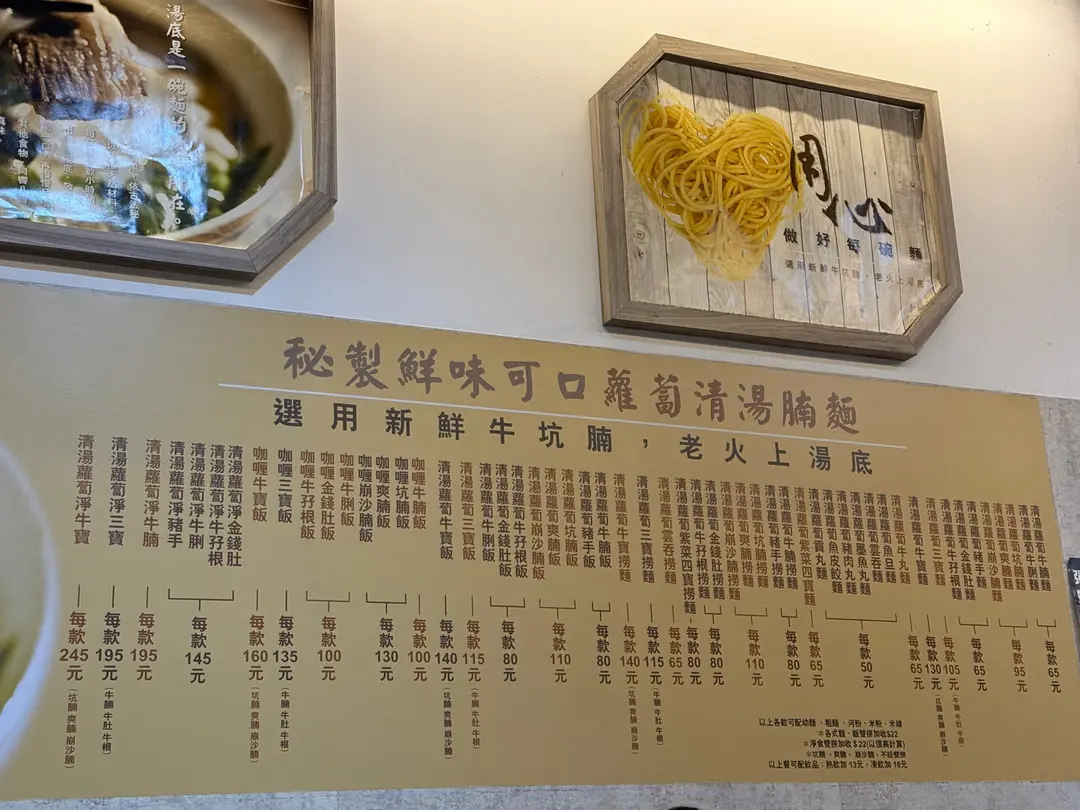 湯底是一碗麵的
用心
做好每碗麵
選用新鮮牛坑腩,老火上湯底
秘製鮮味可口蘿蔔清湯腩麵
選用新鮮牛坑腩,老火上湯底
清湯蘿蔔牛腩麵
清湯蘿蔔牛脷麵
每款65元
清湯蘿蔔坑腩麵
清湯蘿蔔爽腩麵
清湯蘿蔔崩沙腩麵
每款95元
清湯蘿蔔豬手麵
清湯蘿蔔金錢肚麵
清湯蘿蔔牛孖根麵
每款65元
清湯蘿蔔三寶麵
每款105元
(牛腩 牛肚 牛根)
清湯蘿蔔牛寶麵
每款130元
(坑腩 爽腩 崩沙腩)
清湯蘿蔔牛丸麵
每款65元
清湯蘿蔔魚旦麵
清湯蘿蔔雲吞麵
清湯蘿蔔墨魚丸麵
清湯蘿蔔豬肉丸麵
清湯蘿蔔魚皮餃麵
清湯蘿蔔貢丸麵
每款50元
清湯蘿蔔紫菜四寶麵
每款65元
清湯蘿蔔牛腩撈麵
清湯蘿蔔豬手撈麵
每款80元
清湯蘿蔔坑腩撈麵
清湯蘿蔔爽腩撈麵
清湯蘿蔔崩沙腩撈麵
每款110元
清湯蘿蔔金錢肚撈麵
清湯蘿蔔牛孖根撈麵
每款80元
清湯蘿蔔紫菜四寶撈麵
每款80元
清湯蘿蔔雲吞撈麵
每款65元
清湯蘿蔔三寶撈麵
每款115元
(牛腩 牛肚 牛根)
清湯蘿蔔牛寶撈麵
每款140元
(坑腩 爽腩 崩沙腩)
清湯蘿蔔牛腩飯
清湯蘿蔔豬手飯
每款80元
清湯蘿蔔坑腩飯
清湯蘿蔔爽腩飯
清湯蘿蔔崩沙腩飯
每款110元
清湯蘿蔔牛孖根飯
清湯蘿蔔金錢肚飯
清湯蘿蔔牛脷飯
每款80元
清湯蘿蔔三寶飯
每款115元
(牛腩 牛肚 牛根)
清湯蘿蔔牛寶飯
每款140元
(坑腩 爽腩 崩沙腩)
咖喱牛腩飯
每款100元
咖喱坑腩飯
咖喱爽腩飯
咖喱崩沙腩飯
每款130元
咖喱牛脷飯
咖喱金錢肚飯
咖喱牛孖根飯
每款100元
咖喱三寶飯
每款135元
(牛腩 牛肚 牛根)
咖喱牛寶飯
每款160元
(坑腩 爽腩 崩沙腩)
清湯蘿蔔淨金錢肚
清湯蘿蔔淨牛孖根
清湯蘿蔔淨牛脷
清湯蘿蔔淨豬手
每款145元
清湯蘿蔔淨牛腩
每款195元
清湯蘿蔔淨三寶
每款195元
(牛腩 牛肚 牛根)
清湯蘿蔔淨牛寶
每款245元
(坑腩 爽腩 崩沙腩)
以上各款可配幼麵、粗麵、河粉、米粉、米線
*各式麵、飯雙拼加收$22
*淨食雙拼加收$22(以價高計算)
*坑腩、爽腩、崩沙腩,不設雙拼
以上餐可配飲品:熱飲加13元,凍飲加16元